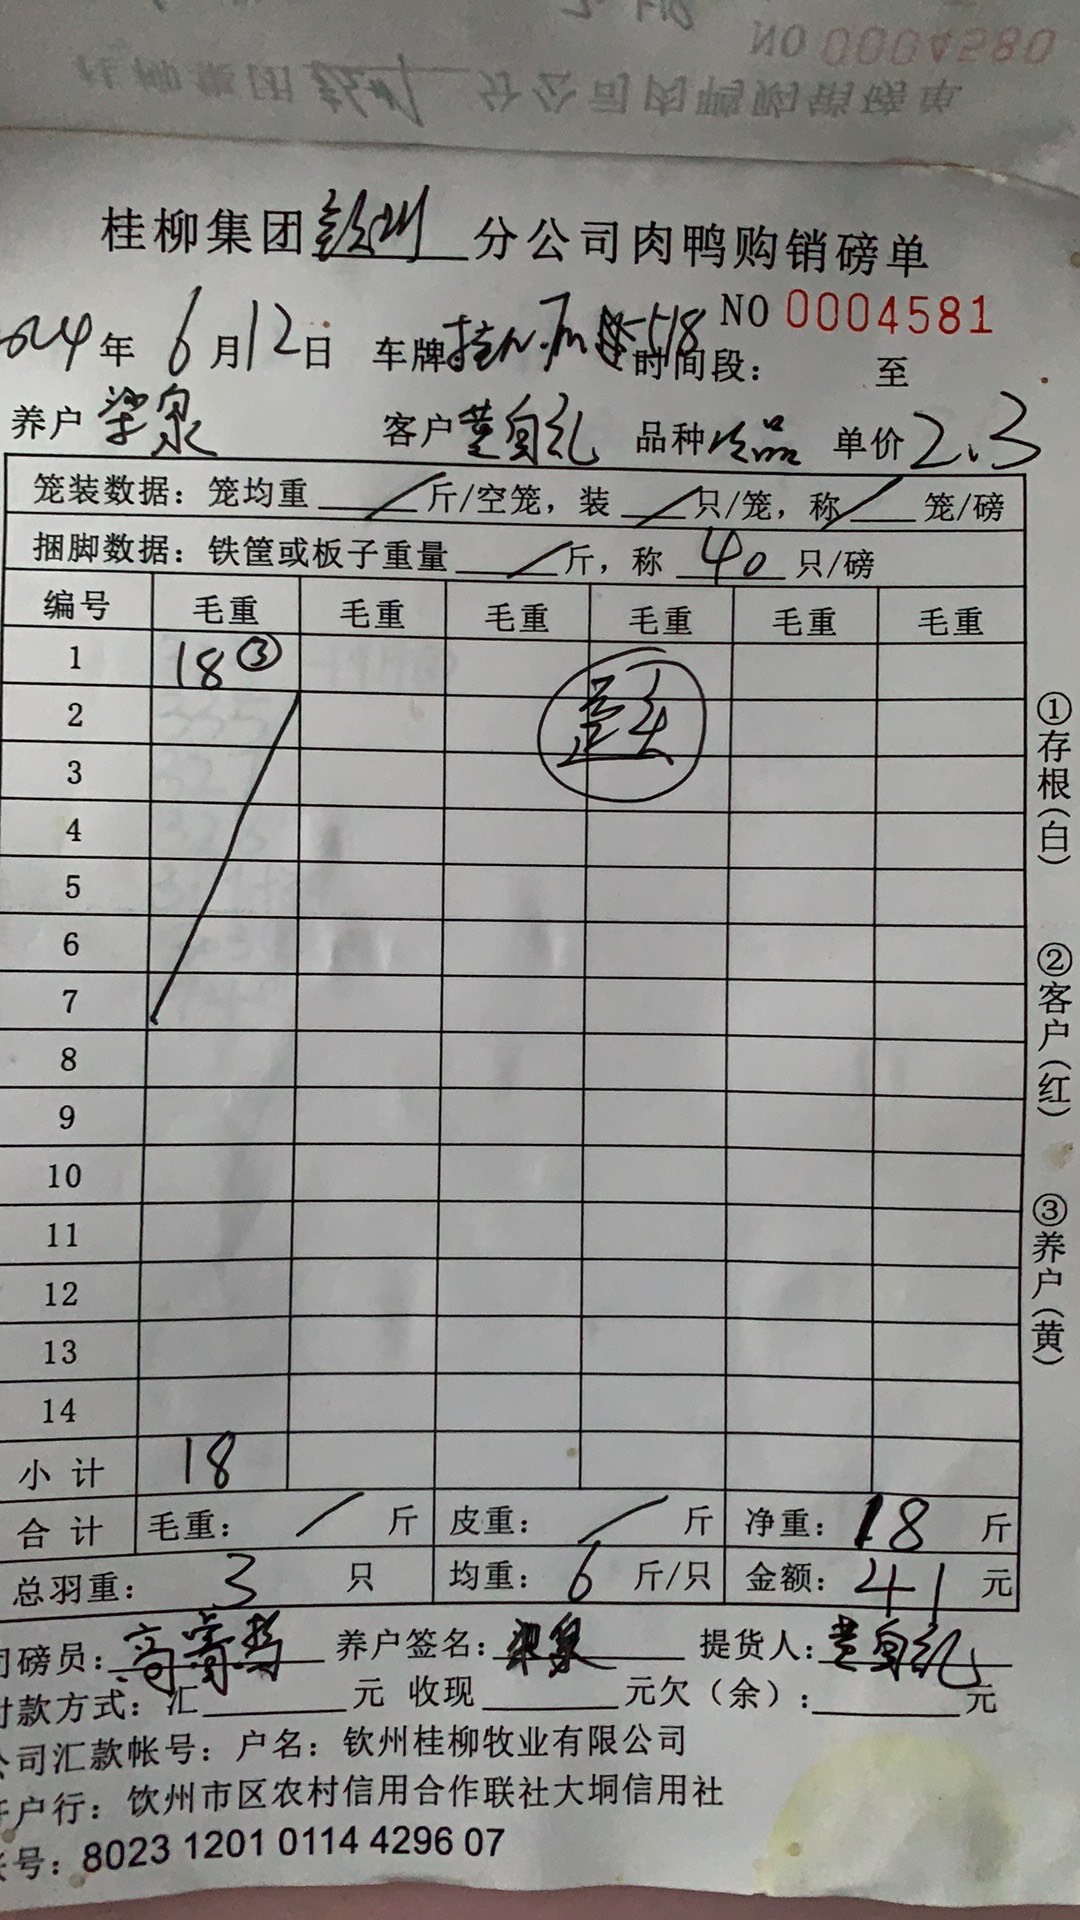 NO 0004580
桂柳集团钦州分公司肉鸭购销磅单
桂柳集团钦州分公司肉鸭购销磅单
NO 0004581
2024年6月12日 车牌 518 时间段： 至
养户 梁泉 客户 黄自礼 品种 次品 单价 2.3
笼装数据：笼均重 / 斤/空笼，装 / 只/笼，称 / 笼/磅
捆脚数据：铁筐或板子重量 / 斤，称 40 只/磅
编号 毛重 毛重 毛重 毛重 毛重 毛重
1 18 ③
2
3
4
5
6
7
8
9
10
11
12
13
14
小计 18
合计 毛重： / 斤 皮重： / 斤 净重： 18 斤
总羽重： 3 只 均重： 6 斤/只 金额： 41 元
司磅员： 养户签名：梁泉 提货人：黄自礼
付款方式：汇 元 收现 元欠（余）： 元
公司汇款帐号：户名：钦州桂柳牧业有限公司
开户行：钦州市区农村信用合作联社大垌信用社
帐号：8023 1201 0114 4296 07
①存根（白）
②客户（红）
③养户（黄）